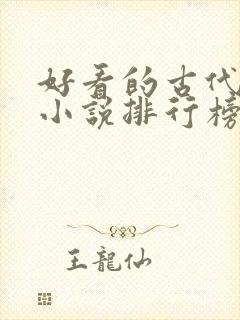 好看的古代
小説排行榜
王龍仙